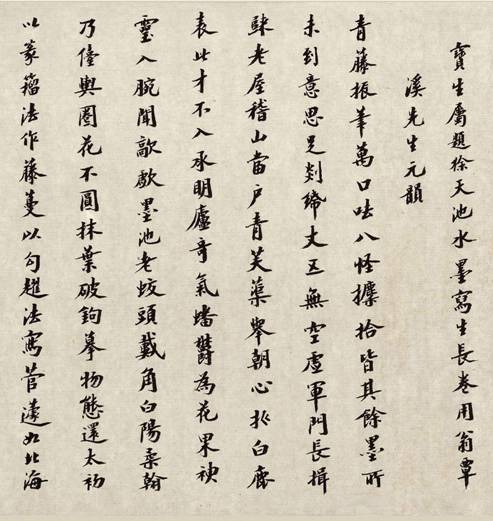 寶生屬題徐天池水墨寫生長卷用翁覃
溪先生元韻
青藤振筆萬口呿八怪攈拾皆其餘墨所
未到意思足剡丈五無空虛軍門長揖
老屋稽山當戶青芙蕖舉朝心白鹿
表此才不入承明廬奇氣蟠鬱為花果
靈入腕聞歔欷墨池老蛟頭戴角白陽翰
乃輿圈花不圓抹葉破鉤摹物態還太初
以篆籀法作藤蔓以勾趯法寫菅蘧如北海